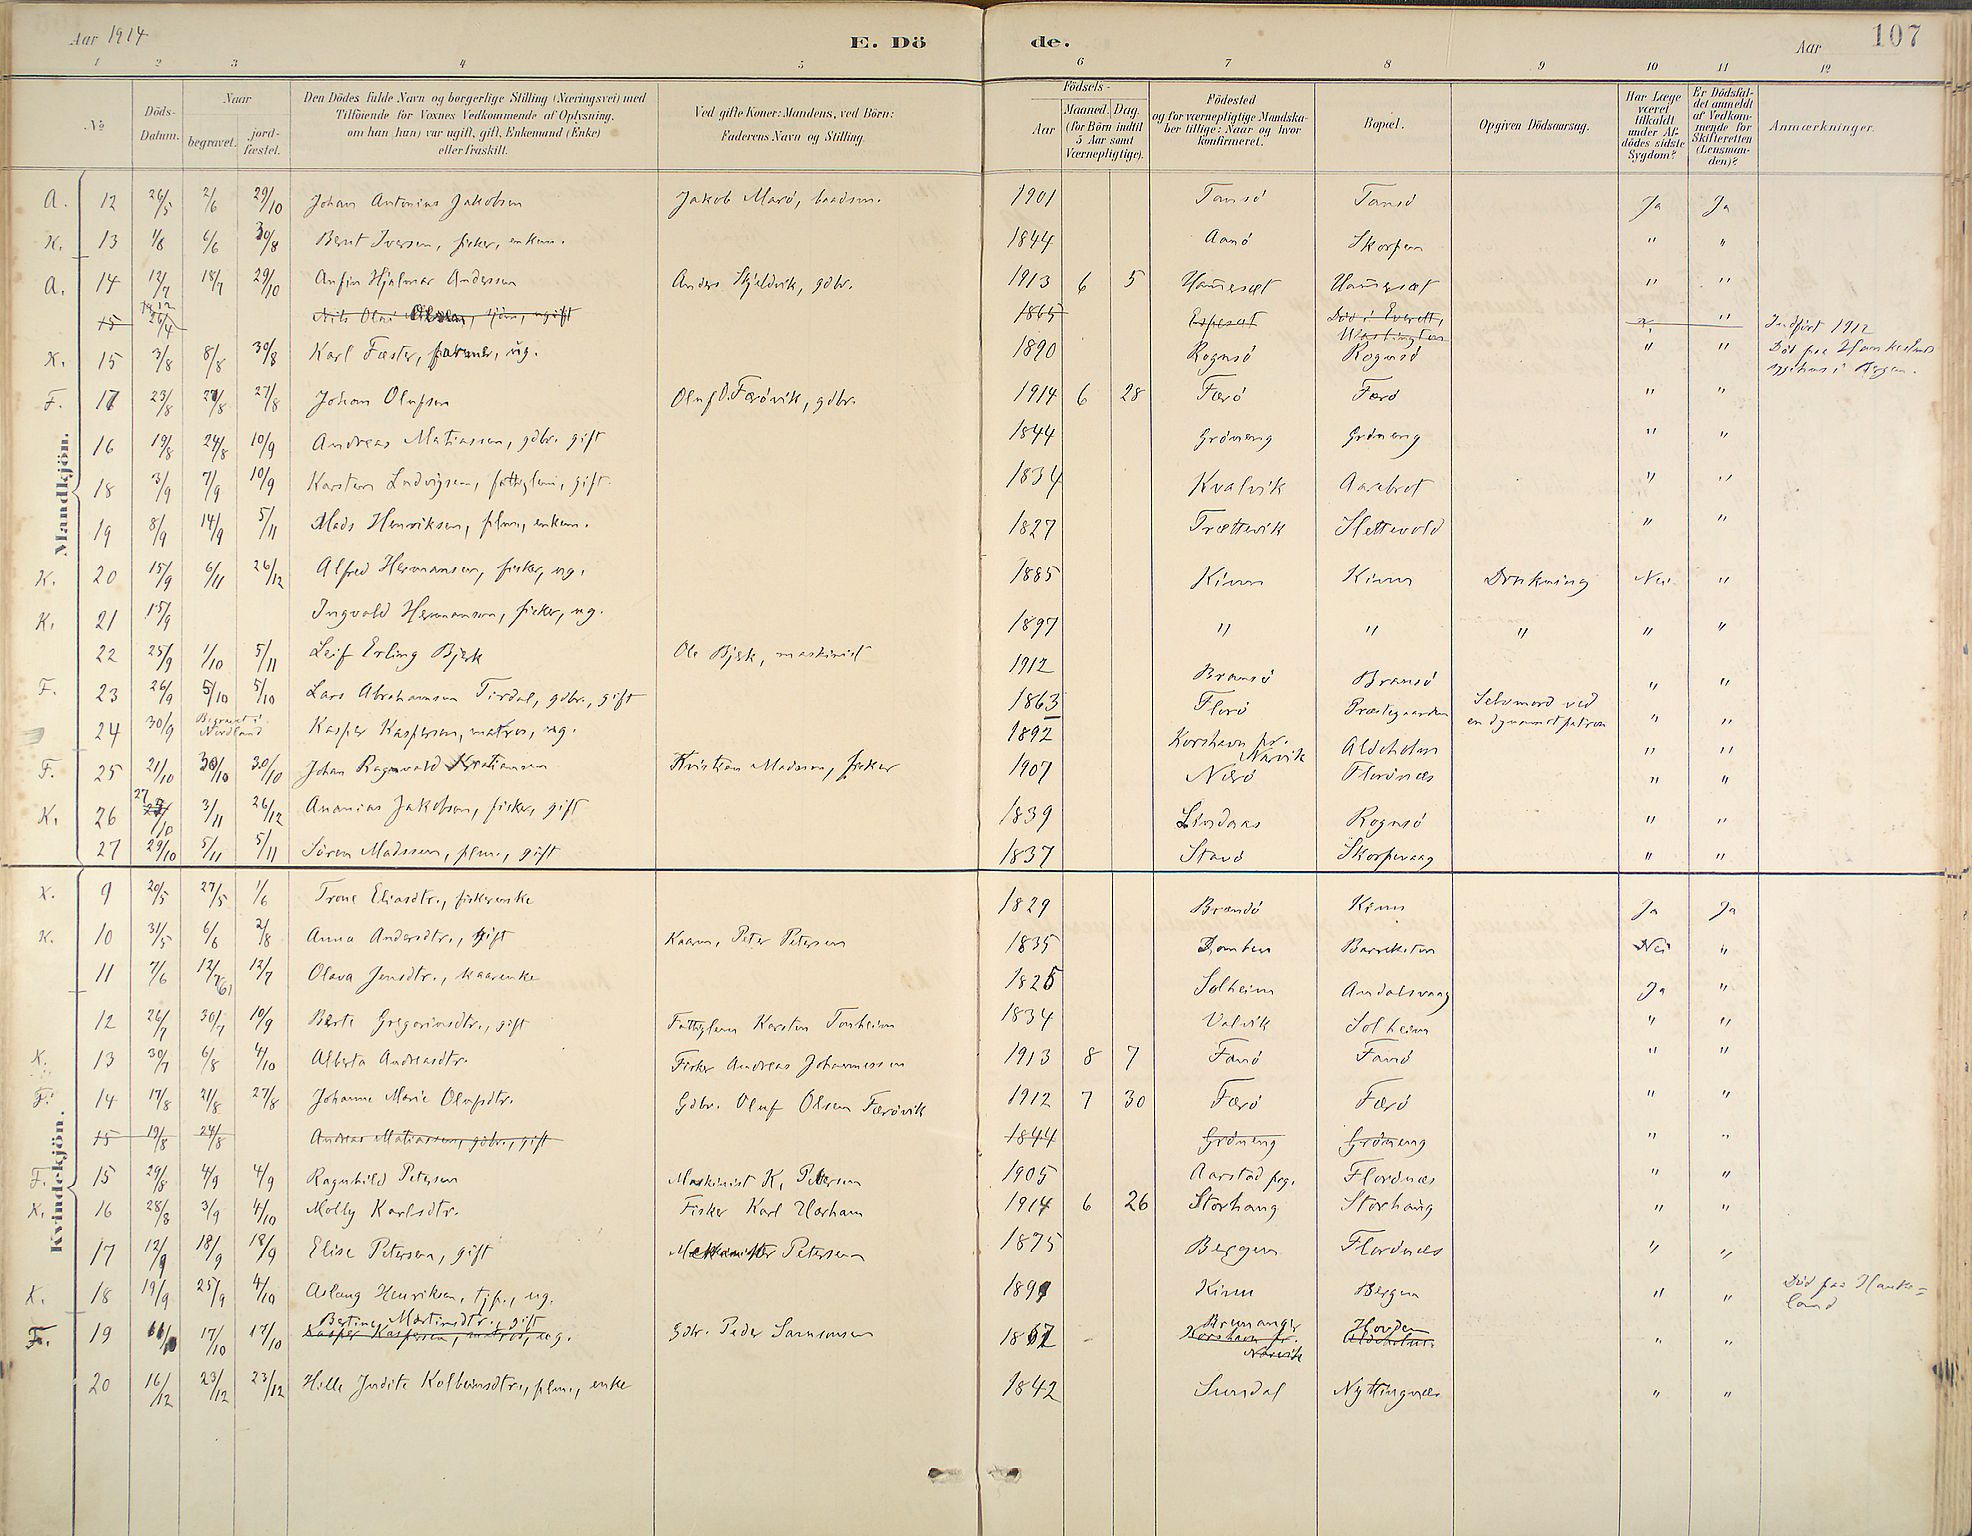 Aar 1914
E. Dö
de.
Aar
107
1 2 3 4 5 6 7 8 9 10 11 12
No
Döds-
Datum.
Naar
begravet.
jord-
fæstet.
Den Dödes fulde Navn og borgerlige Stilling (Næringsvei) med
Tilföiende for Voxnes Vedkommende af Oplysning,
om han (hun) var ugift, gift, Enkemand (Enke)
eller fraskilt.
Ved gifte Koner: Mandens, ved Börn:
Faderens Navn og Stilling.
Födsels-
Aar
Maaned. Dag.
(for Börn indtil
5 Aar samt
Værnepligtige).
Födested
og for værnepligtige Mandska-
ber tillige: Naar og hvor
konfirmeret.
Bopæl.
Opgiven Dödsaarsag.
Har Læge
været
tilkaldt
under Af-
dödes sidste
Sygdom?
Er Dödsfal-
det anmeldt
af Vedkom-
mende for
Skifteretten
(Lensman-
den)?
Anmærkninger.
Mandkjön.
A. 12 26/5 2/6 29/10 Johan Antonius Jakobsen Jakob Marö, baadsm. 1901 Tansö Tansö Ja Ja
K. 13 1/6 6/6 30/8 Bernt Iversen, fisker, enkem. 1844 Aanö Skorpen " "
A. 14 12/7 18/7 29/10 Anfin Hjalmar Andersen Anders Hjeldvik, gdbr. 1913 6 5 Hammerset Hammerset " "
15 26/4 Nils Olai ugift 1865 Espeset Död i Everett, Washington " Indført 1912
K. 15 3/8 8/8 30/8 Karl Fæster, ug. 1890 Rognsö Rognsö " " Död paa Haukelands
sygehus i Bergen.
F. 17 23/8 27/8 27/8 Johan Olufsen Oluf O. Færövik, gdbr. 1914 6 28 Færö Færö " "
16 19/8 24/8 10/9 Andreas Matiassen, gdbr. gift 1844 Gröneng Gröneng " "
18 3/9 7/9 10/9 Karsten Ludvigsen, fattiglem, gift. 1834 Kvalvik Aarebrot " "
19 8/9 14/9 5/11 Mads Henriksen, plm., enkem. 1827 Trættevik Slettevold " "
K. 20 15/9 6/11 26/12 Alfred Hermansen, fisker, ug. 1885 Kinn Kinn Drukning Nei "
K. 21 15/9 Ingvald Hermansen, fisker, ug. 1897 " " " " "
22 25/9 1/10 5/11 Leif Erling Bjerk Ole Bjerk, maskinist 1912 Bransö Bransö " "
F. 23 26/9 5/10 5/10 Lars Abrahamsen Tirdal, gdbr., gift 1863 Florö Præstegaarden Selvmord ved
en dynamitpatron " "
24 30/9 Begravet i
Nordland Kasper Kaspersen, matros, ug. 1892 Korshavn pr.
Narvik Aldeholm " "
F. 25 21/10 30/10 30/10 Johan Ragnvald Kristiansen Kristian Madssen, fisker 1907 Nærö Florönes " "
K. 26 27/10 3/11 26/12 Ananias Jakobsen, fisker, gift 1839 Lindaas Rognsö " "
27 29/10 5/11 5/11 Sören Madssen, plm., gift 1837 Stavö Skorpevaag " "
Kvindekjön.
K. 9 20/5 27/5 1/6 Trone Eliasdtr., fiskerenke 1829 Brandö Kinn Ja Ja
K. 10 31/5 6/6 2/8 Anna Andersdtr., gift Kaarm. Peter Petersen 1835 Domben Barrekisten Nei "
11 7/6 12/7 12/7 Olava Jensdtr., kaarenke 1825 Solheim Andalsvaag Ja "
12 26/7 30/7 10/9 Berte Gregoriusdtr., gift Fattiglem Karsten Tonheim 1834 Valvik Solheim " "
K. 13 30/7 6/8 4/10 Alberta Andreasdtr. Fisker Andreas Johannessen 1913 8 7 Fanö Fanö " "
F. 14 17/8 21/8 27/8 Johanne Marie Olufsdtr. Gdbr. Oluf Olsen Færövik 1912 7 30 Færö Færö " "
15 19/8 24/8 Andreas Matiassen, gdbr., gift 1844 Gröneng Gröneng " "
F. 15 29/8 4/9 4/9 Ragnhild Petersen Maskinist K. Petersen 1905 Aarstad prg. Florönes " "
K. 16 28/8 3/9 4/10 Molly Karlsdtr. Fisker Karl Harham 1914 6 26 Storhaug Storhaug " "
17 12/9 18/9 18/9 Elise Petersen, gift Petersen 1875 Bergen Florönes " "
K. 18 19/9 25/9 4/10 Aslaug Henriksen, tjp., ug. 1899 Kinn Bergen " " Död paa Hauke=
land
F. 19 17/10 17/10 Bertine Martinsdtr., gift
Kasper Kaspersen, matros, ug. Gdbr. Peder Samsonsen 1867 Bremanger
Korshavn pr.
Narvik Hovden
Aldeholm " "
20 16/12 23/12 23/12 Hille Judite Kolbeinsdtr., plm., enke 1842 Sundal Nyttingnes " "